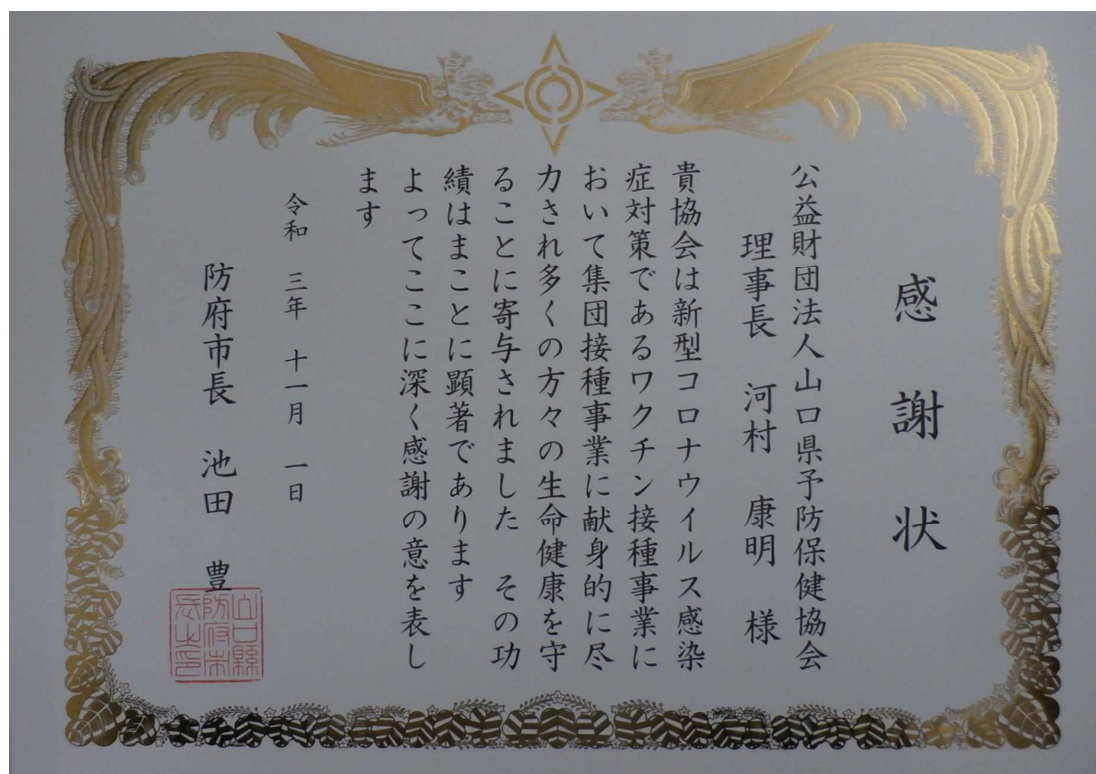 感謝状
公益財団法人山口県予防保健協会
理事長 河村 康明 様
貴協会は新型コロナウイルス感染
症対策であるワクチン接種事業に
おいて集団接種事業に献身的に尽
力され多くの方々の生命健康を守
ることに寄与されました その功
績はまことに顕著であります
よってここに深く感謝の意を表し
ます
令和 三年 十一月 一日
防府市長 池田 豊
山口縣
防府市
長之印